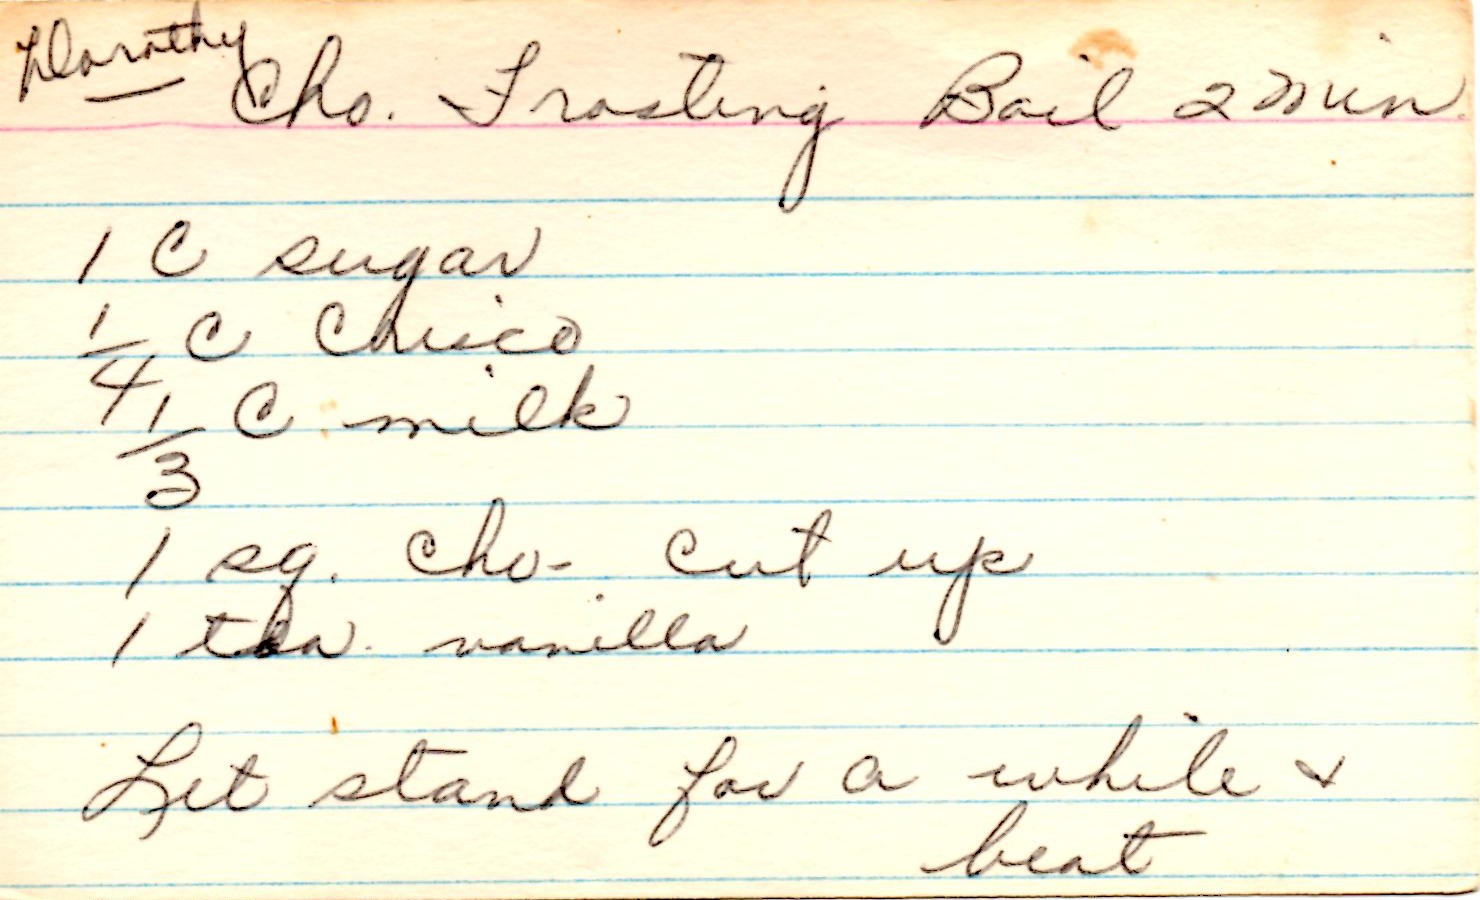 Dorothy
Cho. Frosting Boil 2 Min.
1 C sugar
1/4 C Chisco
1/3 C milk
1 sq. cho- cut up
1 tea. vanilla
Let stand for a while &
beat